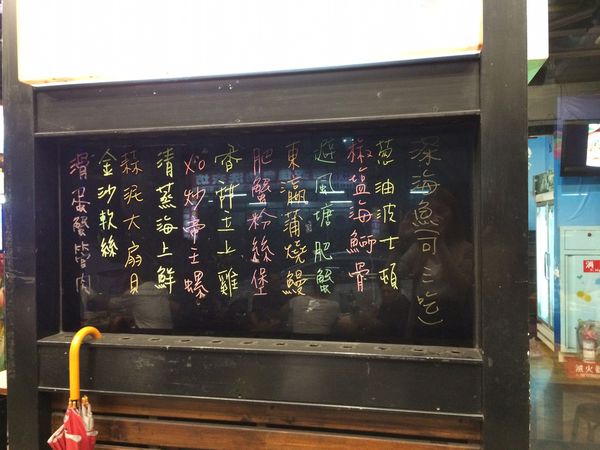 深海魚(可三吃)
蔥油波士頓
椒鹽海鱺骨
避風塘肥蟹
東瀛蒲燒鰻
肥蟹粉絲堡
香拌土雞
火炒帝王螺
清蒸海上鮮
蒜泥大扇貝
金沙軟絲
滑蛋蟹管肉
消
滅火